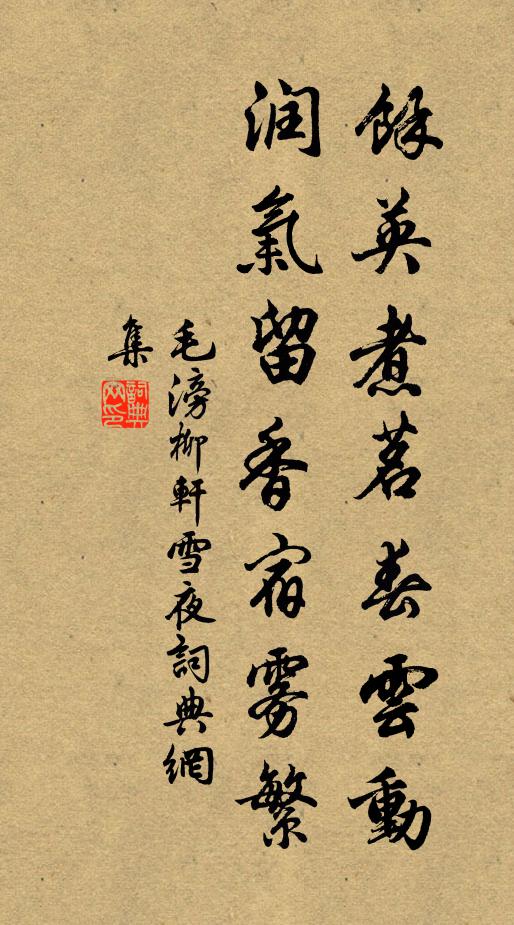 餘英煮茗春雲動
润氣留香宿雾繁
毛滂柳軒雪夜詞典網
集
詞典
网印